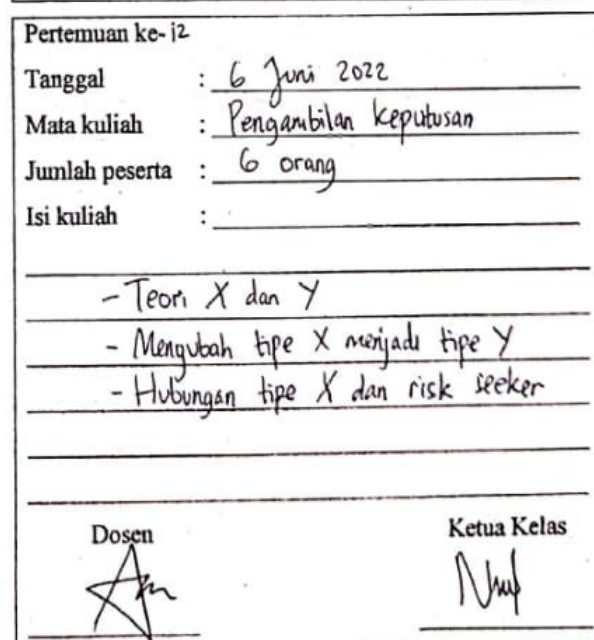 Pertemuan ke- 12
Tanggal : 6 Juni 2022
Mata kuliah : Pengambilan keputusan
Jumlah peserta : 6 orang
Isi kuliah :
- Teori X dan Y
- Mengubah tipe X menjadi tipe Y
- Hubungan tipe X dan risk seeker
Dosen Ketua Kelas